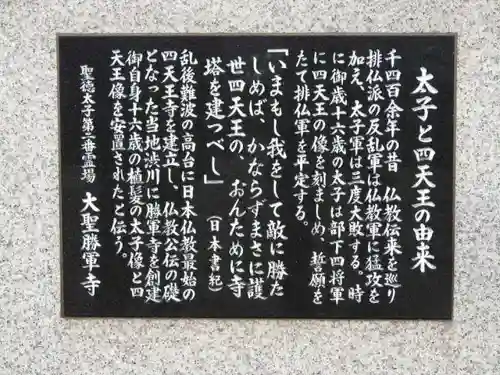 太子と四天王の由来
千四百余年の昔 仏教伝来を巡り
排仏派の反乱軍は仏教軍に猛攻を
加え、太子軍は三度大敗する。時
に御歳十六歳の太子は部下四将軍
に四天王の像を刻ましめ、誓願を
たて排仏軍を平定する。
「いまもし我をして敵に勝た
しめば、かならずまさに護
世四天王の、おんために寺
塔を建つべし」(日本書紀)
乱後難波の高台に日本仏教最始の
四天王寺を建立し、仏教公伝の礎
となった当地渋川に勝軍寺を創建
御自身十六歳の植髪の太子像と四
天王像を安置されたと伝う。
聖徳太子第二番霊場 大聖勝軍寺